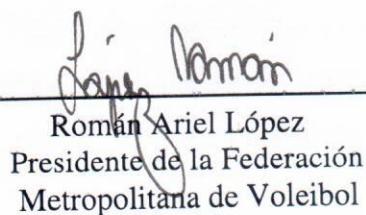 López Román
Román Ariel López
Presidente de la Federación
Metropolitana de Voleibol